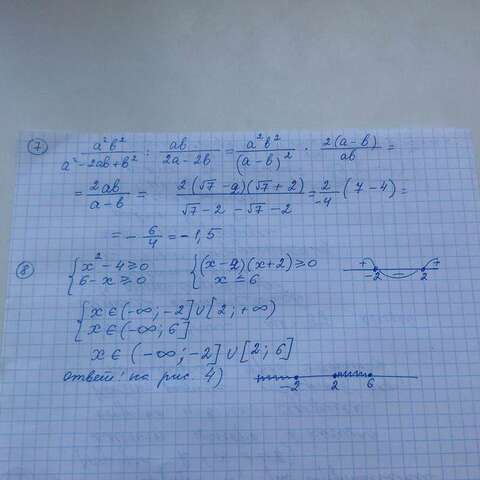 7 a²b²/(a²-2ab+b²) : ab/(2a-2b) = a²b²/(a-b)² · 2(a-b)/ab =
= 2ab/(a-b) = 2(√7-2)(√7+2)/(√7-2-√7-2) = 2/-4 (7-4) =
= -6/4 = -1,5
8 { x²-4≥0 { (x-2)(x+2)≥0 + -2 - 2 +
6-x≥0 x≤6
{ x∈(-∞;-2]∪[2;+∞)
x∈(-∞;6]
x∈(-∞;-2]∪[2;6]
ответ: на рис. 4) -2 2 6